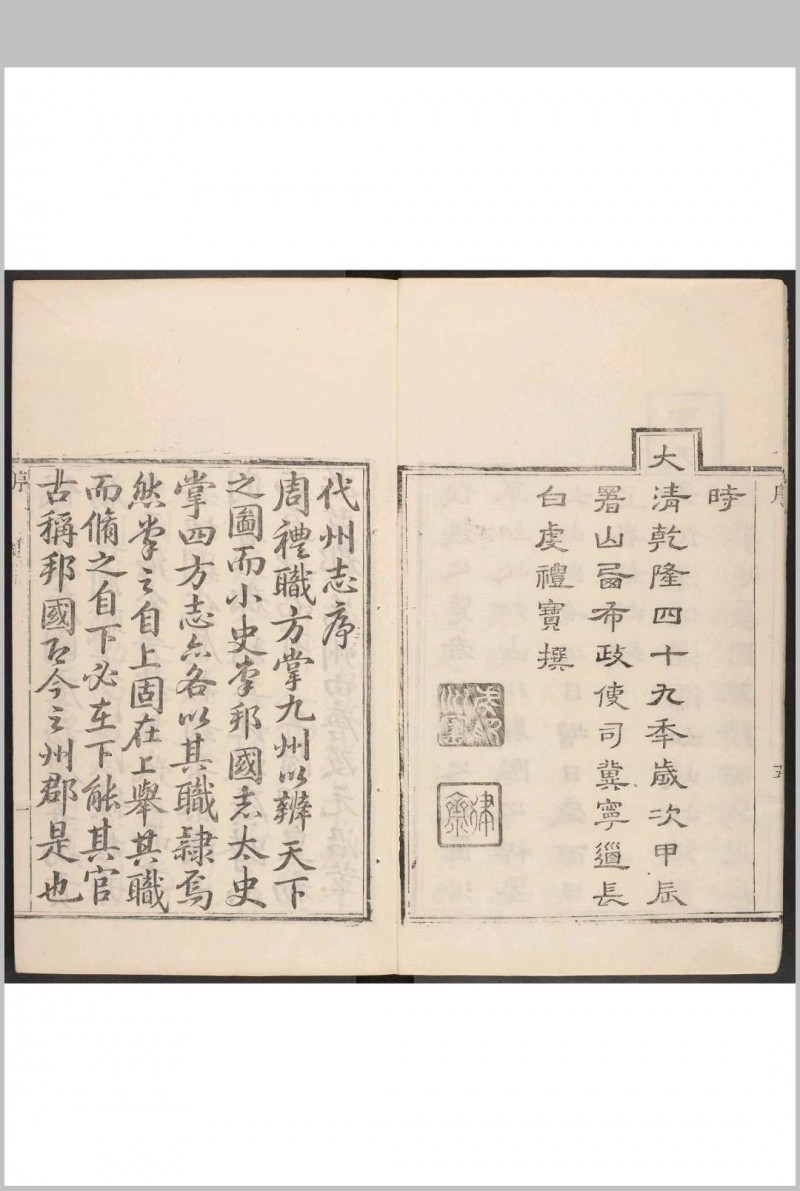 時
大清乾隆四十九季歲次甲辰
署山西布政使司冀寧道長
白虔禮寶撰
津齋
代州志序
周禮職方掌九州以辨天下
之圖而小史掌邦國志太史
掌四方志亦各以其職隸焉
然掌之自上固在上舉其職
而脩之自下必在下能其官
古稱邦國即今之州郡是也
序
一